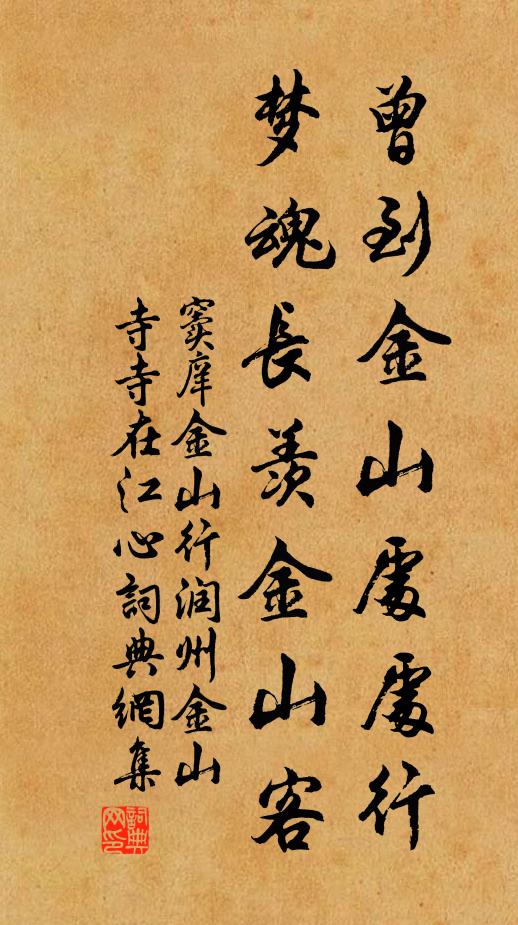 曾到金山處處行
梦魂長羡金山客
窦庠金山行润州金山
寺寺在江心詞典網集
詞典
网印